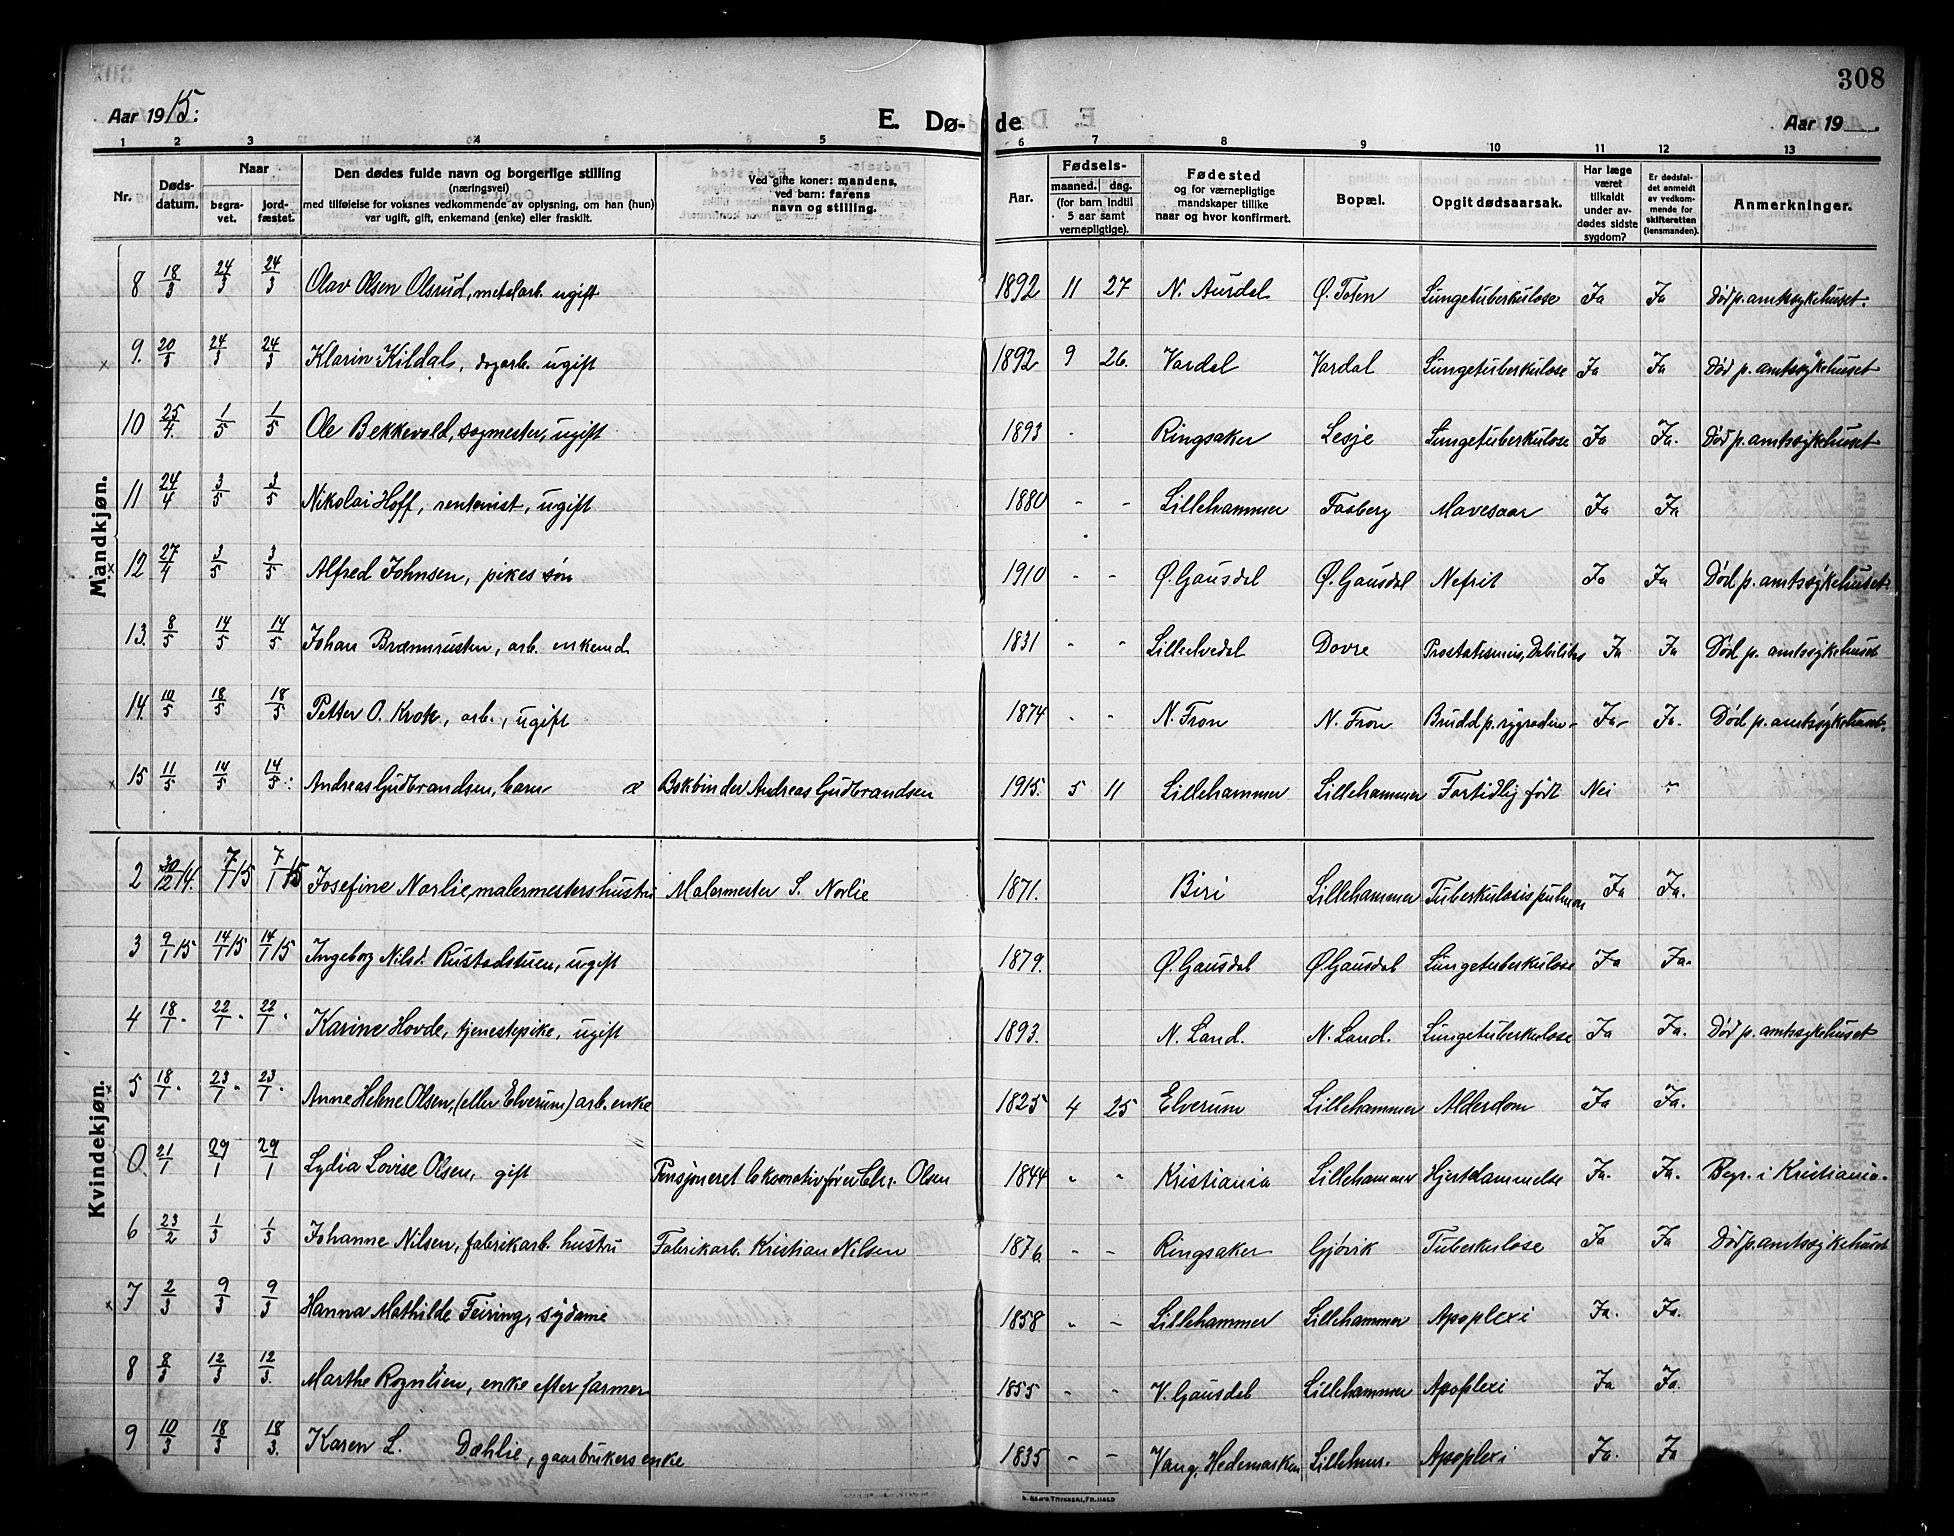 308
Aar 1915: E. Dø- de Aar 19
1 2 3 4 5 6 7 8 9 10 11 12 13
Nr. Døds-datum. Naar begra-vet. jord-fæstet. Den dødes fulde navn og borgerlige stilling (næringsvei) med tilføielse for voksnes vedkommende av oplysning, om han (hun) var ugift, gift, enkemand (enke) eller fraskilt. Ved gifte koner: mandens, ved barn: farens navn og stilling. Aar. Fødsels- maaned. dag. (for barn indtil 5 aar samt vernepligtige). Fødested og for værnepligtige mandskaper tillike naar og hvor konfirmert. Bopæl. Opgit dødsaarsak. Har læge været tilkaldt under av-dødes sidste sygdom? Er dødsfal-det anmeldt av vedkom-mende for skifteretten (lensmanden). Anmerkninger.
Mandkjøn.
8 18/3 24/3 24/3 Olav Olsen Olsrud, metalarb. ugift 1892 11 27 N. Aurdal Ø. Toten Lungetuberkulose Ja Ja Død p. amtssykehuset.
9. 20/3 24/3 24/3 Klarin Kildal, dagarb. ugift 1892 9 26. Vardal Vardal Lungetuberkulose Ja Ja Død p. amtssykehuset
10 25/4. 1/5 1/5 Ole Bekkevold, sagmester, ugift 1893 - Ringsaker Lesje Lungetuberkulose Ja Ja. Død p. amtssykehuset
11 24/4 3/5 3/5 Nikolai Hoff, rentenist, ugift 1880 - - Lillehammer Faaberg Mavesaar Ja Ja
12 27/4 3/5 3/5 Alfred Johnsen, pikes søn 1910 - - Ø. Gausdal Ø. Gausdal Nefrit Ja Ja Død p. amtssykehuset.
13. 8/5 14/5 14/5 Johan Brænnrusten, arb. enkemd. 1831 - - Lilleelvedal Dovre Prostatismus, Debilitas Ja Ja Død p. amtssykehuset
14. 10/5 18/5 18/5 Petter O. Krok, arb., ugift 1874 - - N. Fron N. Fron Brudd p. rygraden Ja Ja. Død p. amtssykehuset.
15 11/5 14/5 14/5 Andreas Gudbrandsen, barn æ Bokbinder Andreas Gudbrandsen 1915. 5 11 Lillehammer Lillehammer Fortidlig født Nei -
Kvindekjøn.
2 30/12 14. 7/1 15 7/1 15 Josefine Norlie, malermestershustru Malermester S. Norlie 1871. Biri Lillehammer Tuberkulosis pulmon Ja Ja.
3 9/1 15 14/1 15 14/1 15 Ingeborg Nilsd. Rustadstuen, ugift 1879. Ø. Gausdal Ø. Gausdal Lungetuberkulose Ja Ja.
4 18/1 " 22/1 " 22/1 " Karine Hovde, tjenestepike, ugift 1893. N. Land. N. Land. Lungetuberkulose Ja Ja. Død p. amtssykehuset
5 18/1 " 23/1 " 23/1 " Anne Helene Olsen, (eller Elverum) arb. enke 1825 4 25 Elverum Lillehammer Alderdom Ja Ja.
0 21/1 29/1 29/1 Lydia Lovise Olsen, gift Pensjoneret lokomotivfører Chr. Olsen 1844 " " Kristiania Lillehammer Hjertelammelse Ja. Ja. Begr. i Kristiania.
6 23/2 1/3 1/3 Johanne Nilsen, fabrikarb. hustru Fabrikarb. Kristian Nilsen 1876 - - Ringsaker Gjøvik Tuberkulose Ja Ja Død p. amtssykehuset
7 2/3 9/3 9/3 Hanna Mathilde Feiring, sydame 1858 " - Lillehammer Lillehammer Apoplexi Ja. Ja.
8 8/3 12/3 12/3. Marthe Rognlien, enke efter farmer 1855 - - V. Gausdal Lillehammer Apoplexi Ja Ja.
9 10/3 18/3 18/3. Karen L. Dæhlie, gaarbrukers enke 1835 - - Vang, Hedemarken Lilleham. Apoplexi Ja. Ja